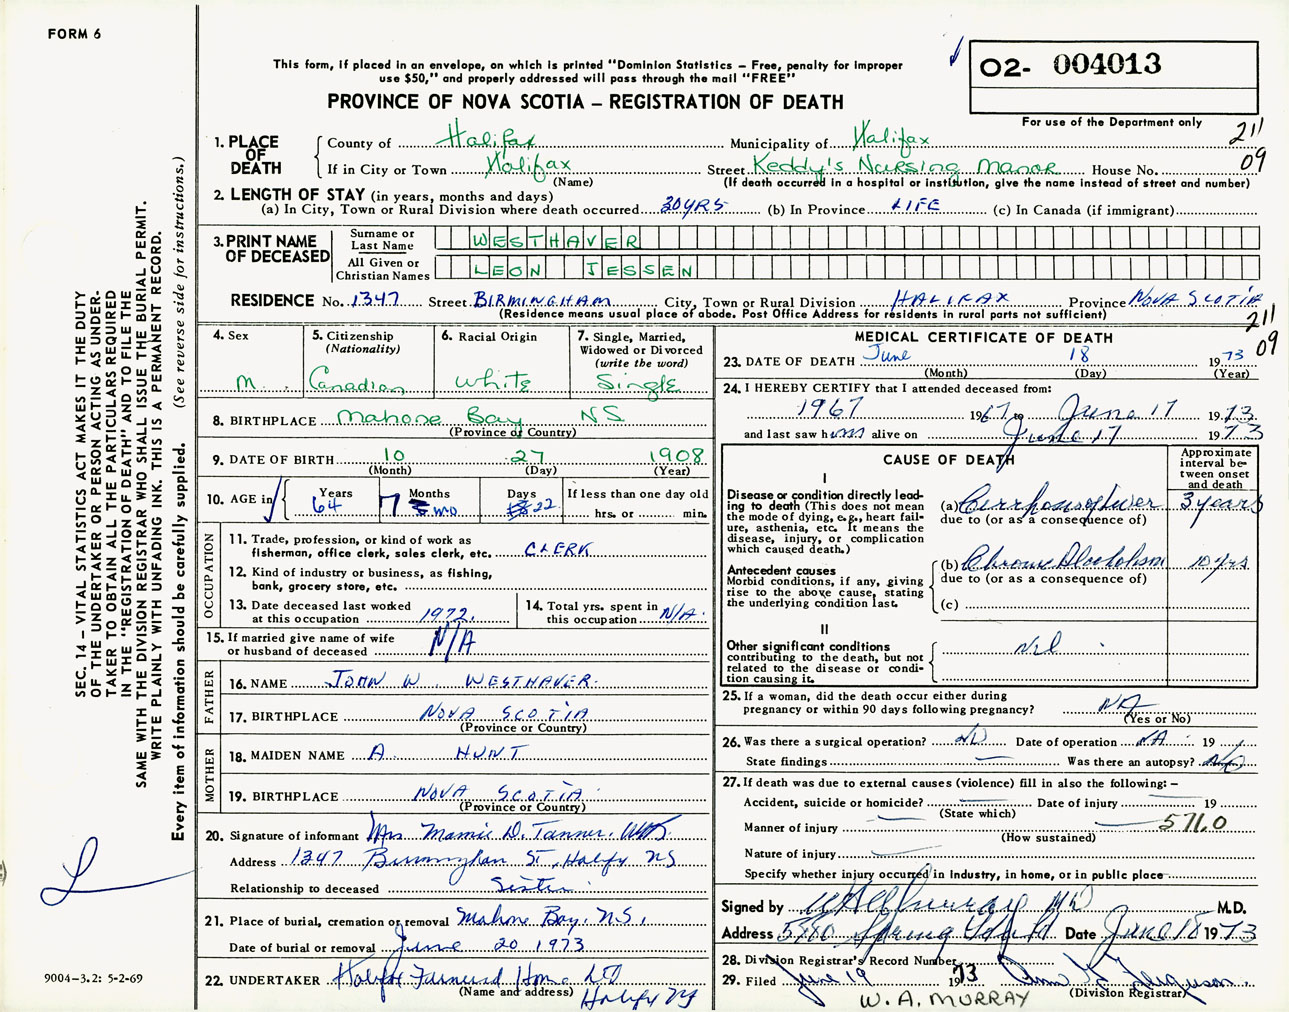 FORM 6
This form, if placed in an envelope, on which is printed "Dominion Statistics – Free, penalty for improper
use $50," and properly addressed will pass through the mail "FREE"
PROVINCE OF NOVA SCOTIA – REGISTRATION OF DEATH
O2- 004013
For use of the Department only
211
09
1. PLACE OF DEATH
County of Halifax Municipality of Halifax
If in City or Town Halifax Street Keddy's Nursing Manor House No.
(Name) (If death occurred in a hospital or institution, give the name instead of street and number)
2. LENGTH OF STAY (in years, months and days)
(a) In City, Town or Rural Division where death occurred 30 YRS (b) In Province LIFE (c) In Canada (if immigrant)
3. PRINT NAME OF DECEASED
Surname or Last Name WESTHAVER
All Given or Christian Names LEON JESSEN
RESIDENCE No. 1347 Street BIRMINGHAM City, Town or Rural Division HALIFAX Province NOVA SCOTIA
(Residence means usual place of abode. Post Office Address for residents in rural parts not sufficient)
211
09
4. Sex M
5. Citizenship (Nationality) Canadian
6. Racial Origin White
7. Single, Married, Widowed or Divorced (write the word) Single
8. BIRTHPLACE Mahone Bay NS
(Province or Country)
9. DATE OF BIRTH 10 27 1908
(Month) (Day) (Year)
10. AGE in Years 64 Months 7 mo Days 22 If less than one day old
hrs. or min.
OCCUPATION
11. Trade, profession, or kind of work as
fisherman, office clerk, sales clerk, etc. CLERK
12. Kind of industry or business, as fishing,
bank, grocery store, etc.
13. Date deceased last worked
at this occupation 1972.
14. Total yrs. spent in
this occupation N/A.
15. If married give name of wife
or husband of deceased N/A
FATHER
16. NAME JOHN W. WESTHAVER.
17. BIRTHPLACE NOVA SCOTIA
(Province or Country)
MOTHER
18. MAIDEN NAME A. HUNT
19. BIRTHPLACE NOVA SCOTIA
(Province or Country)
20. Signature of informant Mrs Mamie D. Tanner.
Address 1347 Birmingham St, Halifx NS
Relationship to deceased Sister.
21. Place of burial, cremation or removal Mahone Bay, N.S.
Date of burial or removal June 20 1973
22. UNDERTAKER Halifax Funeral Home LTD
(Name and address) Halifx NS
MEDICAL CERTIFICATE OF DEATH
23. DATE OF DEATH June 18 1973
(Month) (Day) (Year)
24. I HEREBY CERTIFY that I attended deceased from:
1967 1967 to June 17 1973
and last saw him alive on June 17 1973
CAUSE OF DEATH
Approximate interval between onset and death
I
Disease or condition directly lead-
ing to death (This does not mean
the mode of dying, e.g., heart fail-
ure, asthenia, etc. It means the
disease, injury, or complication
which caused death.)
(a) Cirrhosis of liver 3 years
due to (or as a consequence of)
Antecedent causes
Morbid conditions, if any, giving
rise to the above cause, stating
the underlying condition last.
(b) Chronic Alcoholism 10 yrs
due to (or as a consequence of)
(c)
II
Other significant conditions
contributing to the death, but not
related to the disease or condi-
tion causing it.
Nil
25. If a woman, did the death occur either during
pregnancy or within 90 days following pregnancy? NA
(Yes or No)
26. Was there a surgical operation? NO Date of operation NA 19
State findings Was there an autopsy? No
27. If death was due to external causes (violence) fill in also the following: –
Accident, suicide or homicide? Date of injury 19
(State which)
Manner of injury 571.0
(How sustained)
Nature of injury
Specify whether injury occurred in industry, in home, or in public place
Signed by W A Murray MD M.D.
Address 5880 Spring Garden Rd Date June 18 1973
28. Division Registrar's Record Number
29. Filed June 19 1973
(Division Registrar)
W. A. MURRAY
SEC. 14 – VITAL STATISTICS ACT MAKES IT THE DUTY
OF THE UNDERTAKER OR PERSON ACTING AS UNDER-
TAKER TO OBTAIN ALL THE PARTICULARS REQUIRED
IN THE "REGISTRATION OF DEATH" AND TO FILE THE
SAME WITH THE DIVISION REGISTRAR WHO SHALL ISSUE THE BURIAL PERMIT.
WRITE PLAINLY WITH UNFADING INK. THIS IS A PERMANENT RECORD.
Every item of information should be carefully supplied. (See reverse side for instructions.)
9004–3.2: 5-2-69